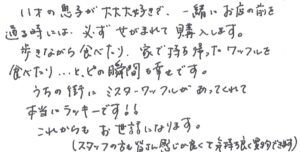 11才の息子が大大大好きで、一緒にお店の前を
通る時には、必ずせがまれて購入します。
歩きながら食べたり、家で持ち帰ったワッフルを
食べたり…と、どの瞬間も幸せです。
うちの街にミスターワッフルがあってくれて
本当にラッキーです!!
これからもお世話になります。
(スタッフの方も皆さん感じが良くて気持ち良く買物できます)